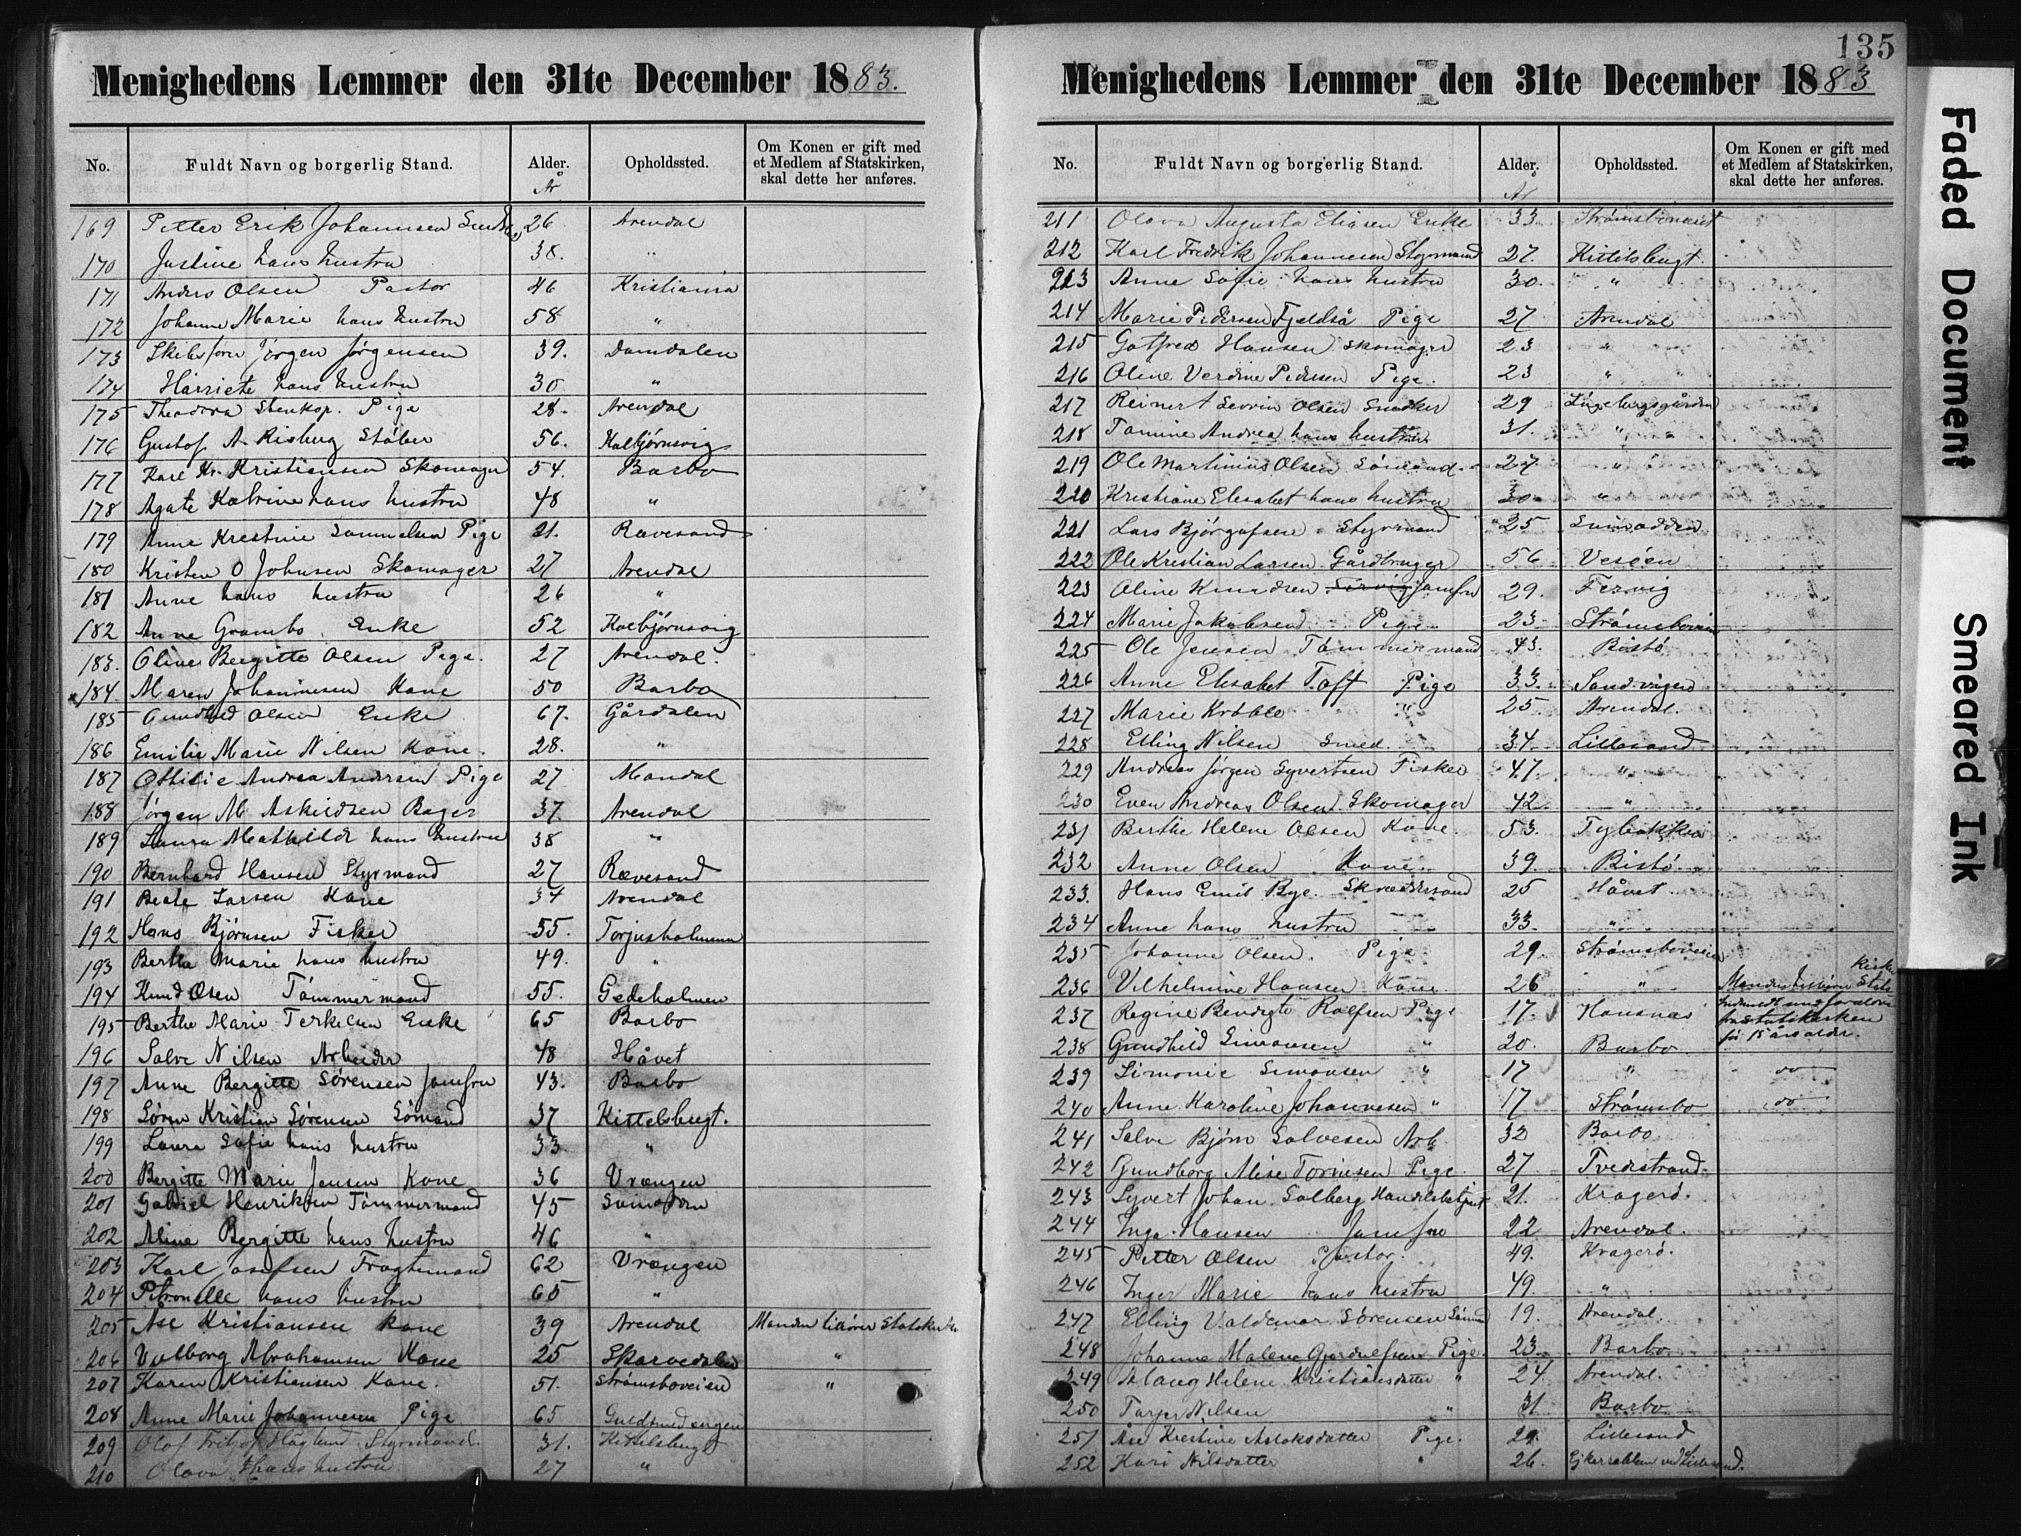 Menighedens Lemmer den 31te December 1883.
No. Fuldt Navn og borgerlig Stand. Alder. Opholdssted. Om Konen er gift med et Medlem af Statskirken, skal dette her anføres.
År
169 Petter Erik Johannsen 26 Arendal
170 Justine hans hustru 38. "
171 Anders Olsen Pastor 46 Kristiania
172 Johanne Marie hans hustru 58 "
173 Skibsfører Jørgen Jørgensen 39. Damdalen
174 Harriete hans hustru 30 "
175 Theodora Stenkop. Pige 28. Arendal
176 Gustof A. Risberg Støber 56. Kolbjørnsvig
177 Karl Kr. Kristiansen Skomager 54. Barbo
178 Agate Katrine hans hustru 48 "
179 Anne Krestine Samuelsen Pige 21. Rævesand
180 Kristen O Johnsen Skomager 27 Arendal
181 Anne hans hustru 26 "
182 Anne Grambo. Enke 52 Kolbjørnsvig
183. Oline Bergitte Olsen Pige. 27 Arendal.
184. Maren Johannesen Kone 50 Barbo
185 Gunhild Olsen Enke 67. Gårdalen
186 Emilie Marie Nilsen Kone. 28. "
187 Ottilie Andrea Andersen Pige 27 Mandal
188 Jørgen M. Askildsen Bager 37 Arendal
189 Laura Mathilde hans hustru 38 "
190 Bernhard Hansen Styrmand 27 Rævesand
191 Beate Larsen Kone 34 Arendal
192 Hans Bjørnsen Fisker 55. Torjusholmen
193 Berthe Marie hans hustru 49. "
194 Knud Olsen Tømmermand 55. Gjedeholmen
195 Berthe Marie Terkelsen Enke 65 Barbo
196 Salve Nilsen Arbeider 48 Håvet
197 Anne Bergitte Sørensen Jomfru 43. Barbo
198 Søren Kristian Sørensen Sømand 37 Kittelsbugt.
199 Laura Sofie hans hustru 33. "
200 Bergitte Marie Jensen Kone 36 Vrængen
201 Gabriel Henriksen Tømmermand 45 Svinodden
202 Aline Bergitte hans hustru 46 "
203 Karl Josefsen Fragtemand 62 Vrængen
204 Petronelle hans hustru 65 "
205 Åse Kristiansen Kone 39 Arendal Manden tilhører Statskirken
206 Valborg Abrahamsen Kone 25 Skarvedalen "
207 Karen Kristiansen Kone. 51. Strømsboveien "
208 Anne Marie Johannesen Pige 65 Guldsmedengen
209 Olof Fritjof Höglund Styrmand. 31. Kittelsbugt
210 Olava hans hustru 27 "
135
Menighedens Lemmer den 31te December 1883
No. Fuldt Navn og borgerlig Stand. Alder. Opholdssted. Om Konen er gift med et Medlem af Statskirken, skal dette her anføres.
År
211 Olava Augusta Eliasen Enke 33. Strømsboneset
212 Karl Fredrik Johannesen Styrmand 27. Kittilsbugt.
213 Anne Sofie hans hustru 30. "
214 Marie Pedersen Fjeldså Pige 27 Arendal
215 Gotfred Hansen Skomager 23 "
216 Oline Verdine Pedersen Pige. 23 "
217 Reinert Severin Olsen Snedker 29
218 Tomine Andrea hans hustru 31. "
219 Ole Martinius Olsen Sømand. 27 "
220 Kristiane Elisabet hans hustru 30 "
221 Lars Bjørgufsen Styrmand 25 Svinodden
222 Ole Kristian Larsen Gårdbruger 56 Vesøen
223 Oline Knudsen Jomfru 29. Fervig
224 Marie Jakobsen Pige 23 Strømsboveien
225 Ole Jensen Tømmermand 43. Bistø
226 Anne Elisabet Toft Pige 33. Sandvigen
227 Marie Krøble " 25 Arendal.
228 Elling Nilsen Smed. 34. Lillesand
229 Andreas Jørgen Syvertsen Fisker 47. "
230 Even Andreas Olsen Skomager 42. "
231 Berthe Helene Olsen Kone. 53. Tybakken
232 Anne Olsen Kone. 39. Bistø
233. Hans Emil Bye. Skræddersvend 25 Håvet
234 Anne hans hustru 33. "
235 Johanne Olsen. Pige 29. Strømsboveien
236 Vilhelmine Hansen Kone. 26 " Manden tilhører Stats kirke
237 Regine Bendigte Rolfsen Pige 17. Hansnæs
238 Gundhild Simonsen " 20. Barbo.
239 Simonie Simonsen " 17 " do
240 Anne Karoline Johannesen " 17 Strømsbo do
241 Salve Bjørn Salvesen Arb. 32 Barbo
242 Gundborg Alise Torinsen Pige. 27 Tvedestrand.
243 Syvert Johan Solberg Handelsbetjent 21. Kragerø.
244 Inga Hansen Jomfru 22 Arendal.
245 Petter Olsen Pastor. 49. Kragerø.
246 Inger Marie hans hustru 49. "
247 Elling Valdemar Sørensen Sømand 19. Arendal
248 Johanne Malene Gjerulfsen Pige. 23. Barbo
249 Aslaug Helene Kristiansdatter " 24 Arendal.
250 Tarjer Nilsen " 31 Barbo
251 Åse Kristine Aslaksdatter Pige. 29. Lillesand
252 Kari Nilsdatter " 26. ved Lillesand.
Faded Document
Smeared Ink